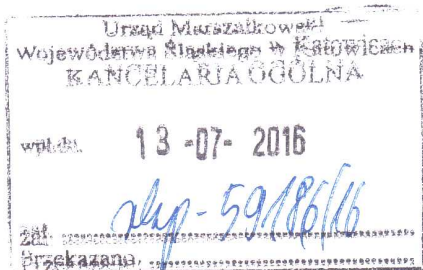 Urząd Marszałkowski
Województwa Śląskiego w Katowicach
KANCELARIA OGÓLNA
wpłyn.
13 -07- 2016
59186/16
zał.
Przekazano